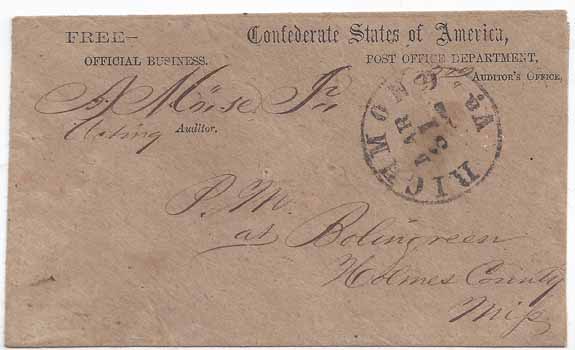 FREE—
Confederate States of America,
OFFICIAL BUSINESS.
POST OFFICE DEPARTMENT,
AUDITOR'S OFFICE,
A Möise Jr
Acting Auditor.
RICHMOND Va.
MAR
P.M.
at Bolingreen
Holmes County
Miss